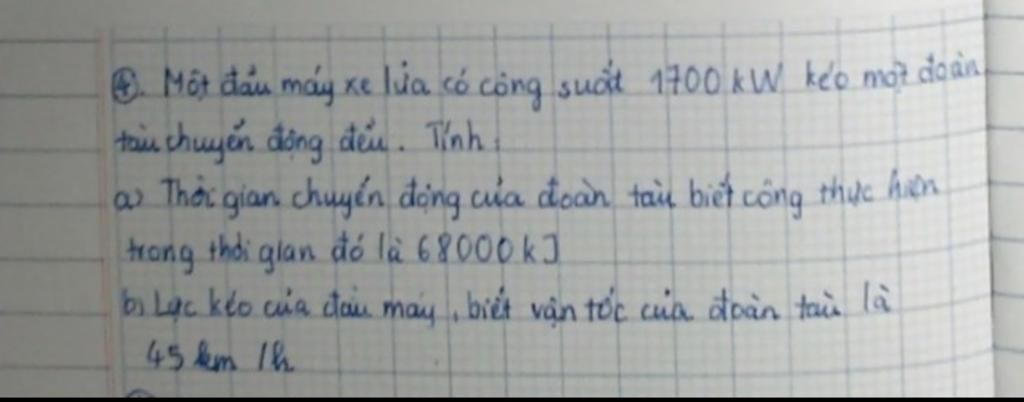 ④. Một đầu máy xe lửa có công suất 1700 kW kéo một đoàn
tàu chuyển động đều. Tính:
a) Thời gian chuyển động của đoàn tàu biết công thực hiện
trong thời gian đó là 68000 kJ
b) Lực kéo của đầu máy, biết vận tốc của đoàn tàu là
45 km/h